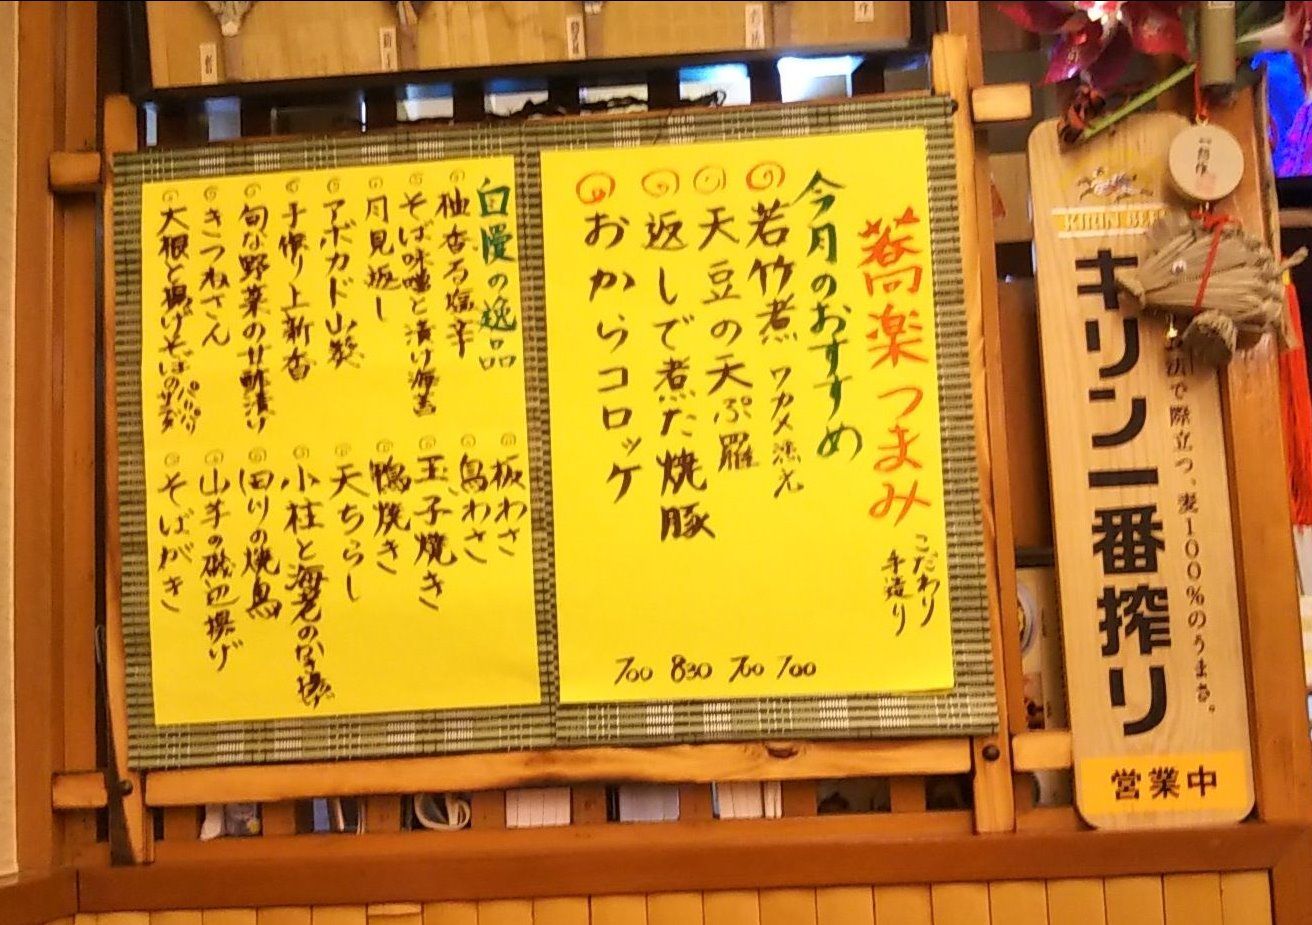 蕎楽つまみ
こだわり
手造り
今月のおすすめ
若竹煮 ワカメ 700
天豆の天ぷ羅 700
返しで煮た焼豚 830
おからコロッケ 700
自慢の逸品
柚香る塩辛
そば味噌と漬け海苔
月見返し
アボカド山葵
手作り上新香
旬な野菜の甘酢漬け
きつねさん
大根と揚げそばの
パリパリ
板わさ
鳥わさ
玉子焼き
鴨焼き
天ちらし
小柱と海老のかき揚
国川の焼鳥
山芋の磯辺揚げ
そばがき
KIRIN BEER
キリン一番搾り
で際立つ、麦100%のうまさ。
営業中